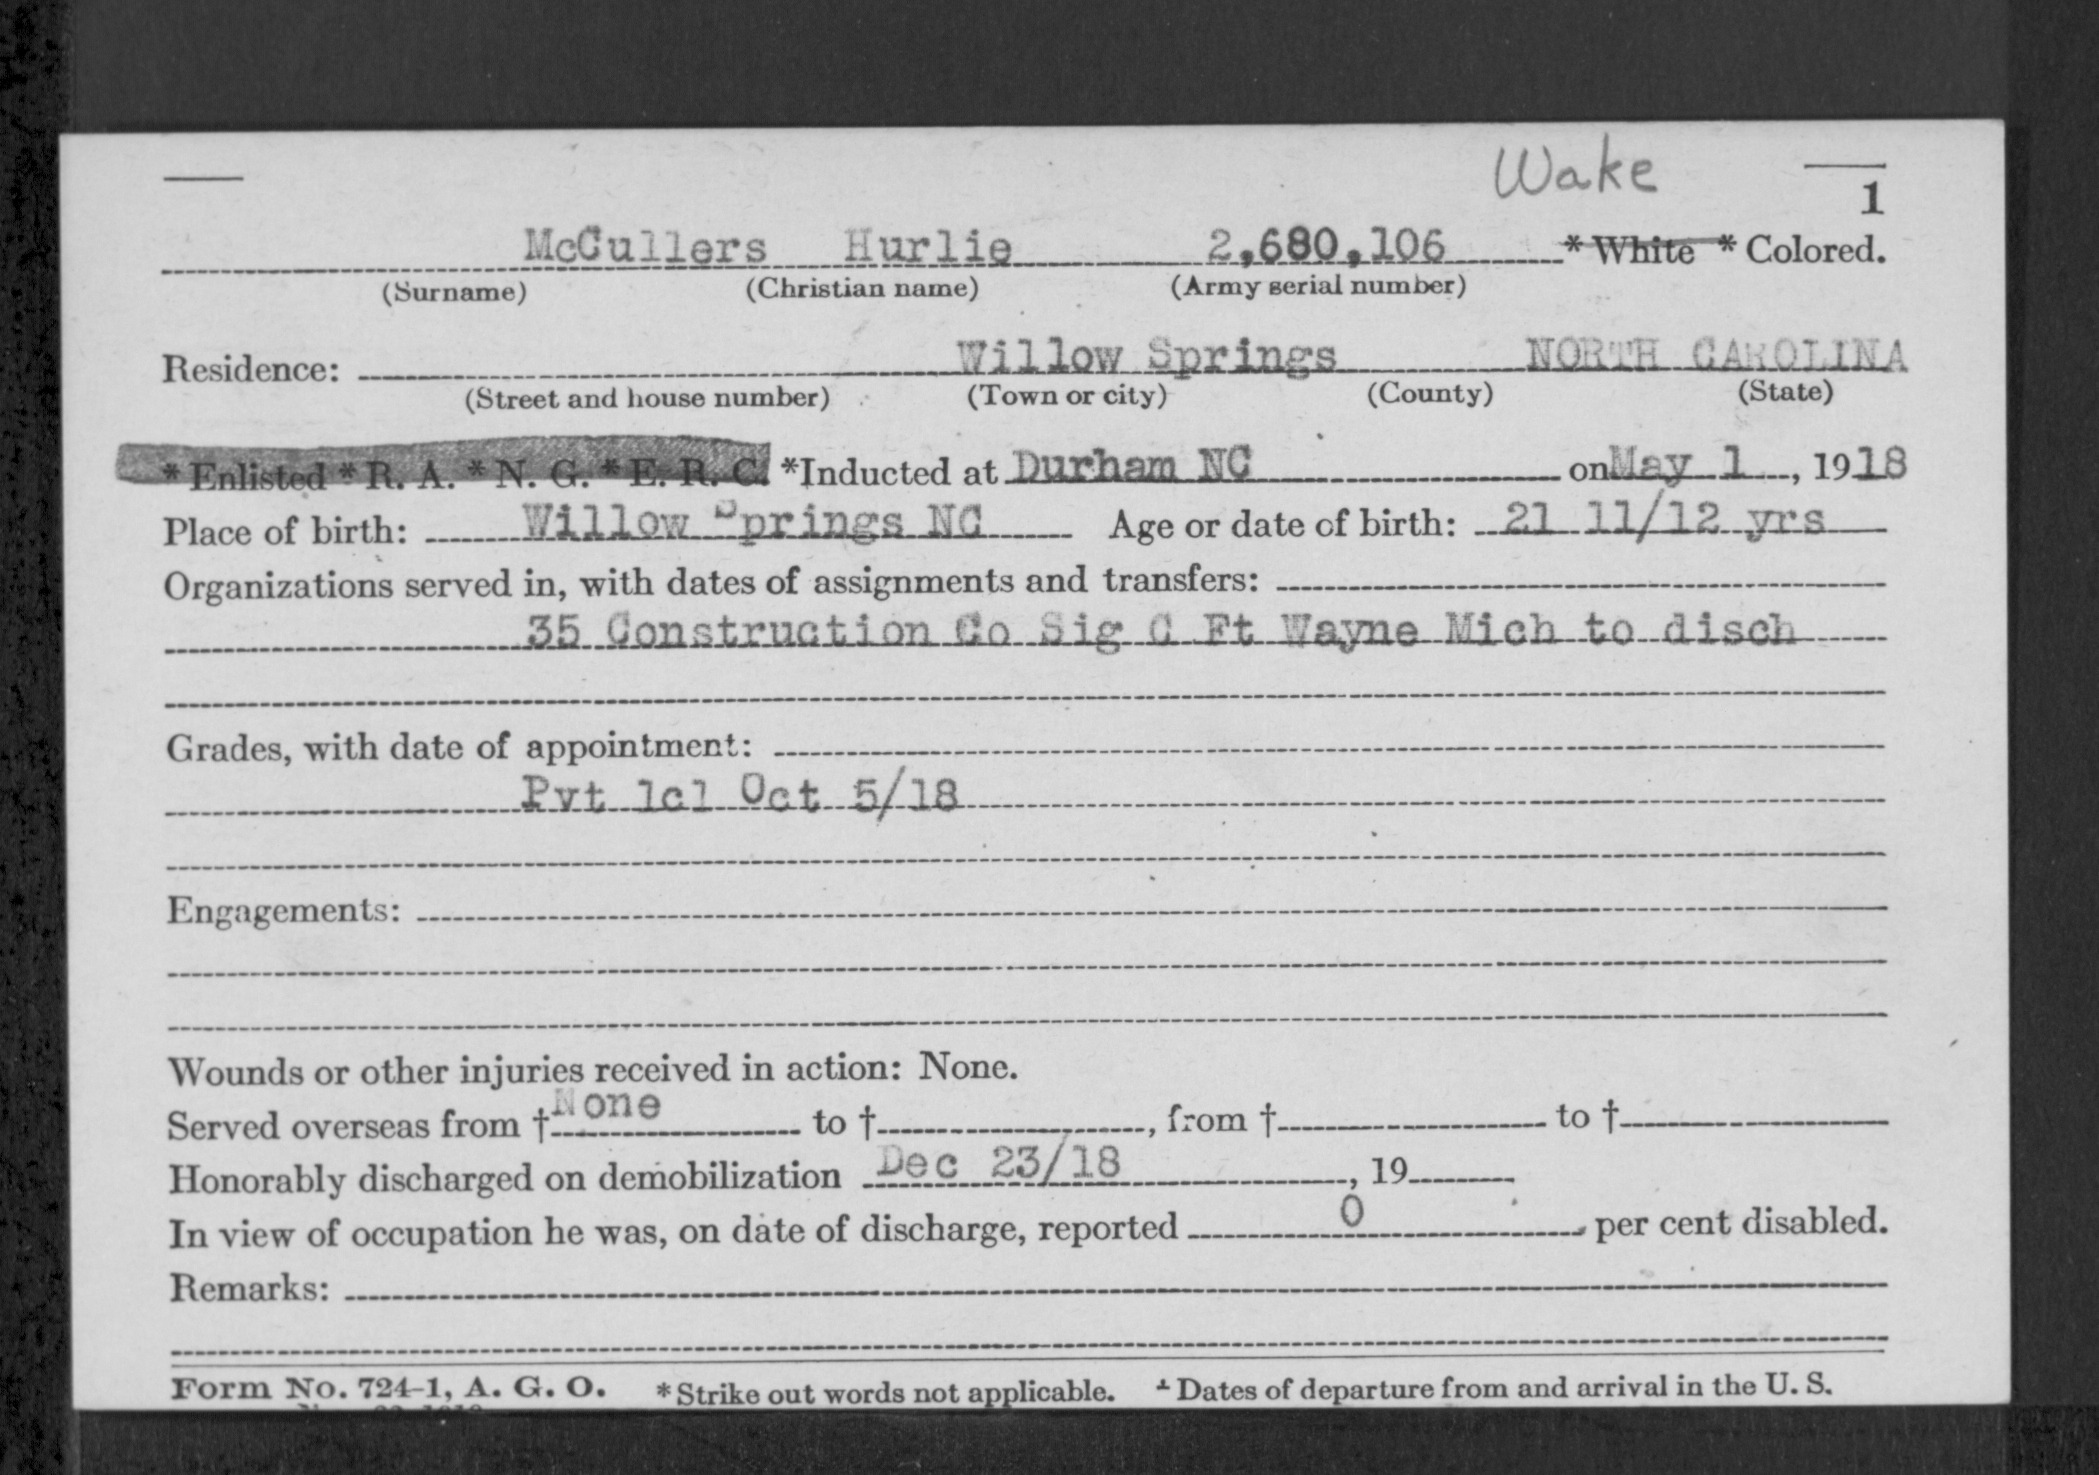 Wake
1
McCullers Hurlie 2,680,106 * White * Colored.
(Surname) (Christian name) (Army serial number)
Residence: Willow Springs NORTH CAROLINA
(Street and house number) (Town or city) (County) (State)
* Enlisted * R. A. * N. G. * E. R. C. *Inducted at Durham NC on May 1, 1918
Place of birth: Willow Springs NC Age or date of birth: 21 11/12 yrs
Organizations served in, with dates of assignments and transfers:
35 Construction Co Sig C Ft Wayne Mich to disch
Grades, with date of appointment:
Pvt 1cl Oct 5/18
Engagements:
Wounds or other injuries received in action: None.
Served overseas from † None to †, from † to †
Honorably discharged on demobilization Dec 23/18, 19
In view of occupation he was, on date of discharge, reported 0 per cent disabled.
Remarks:
Form No. 724-1, A. G. O. * Strike out words not applicable. † Dates of departure from and arrival in the U. S.